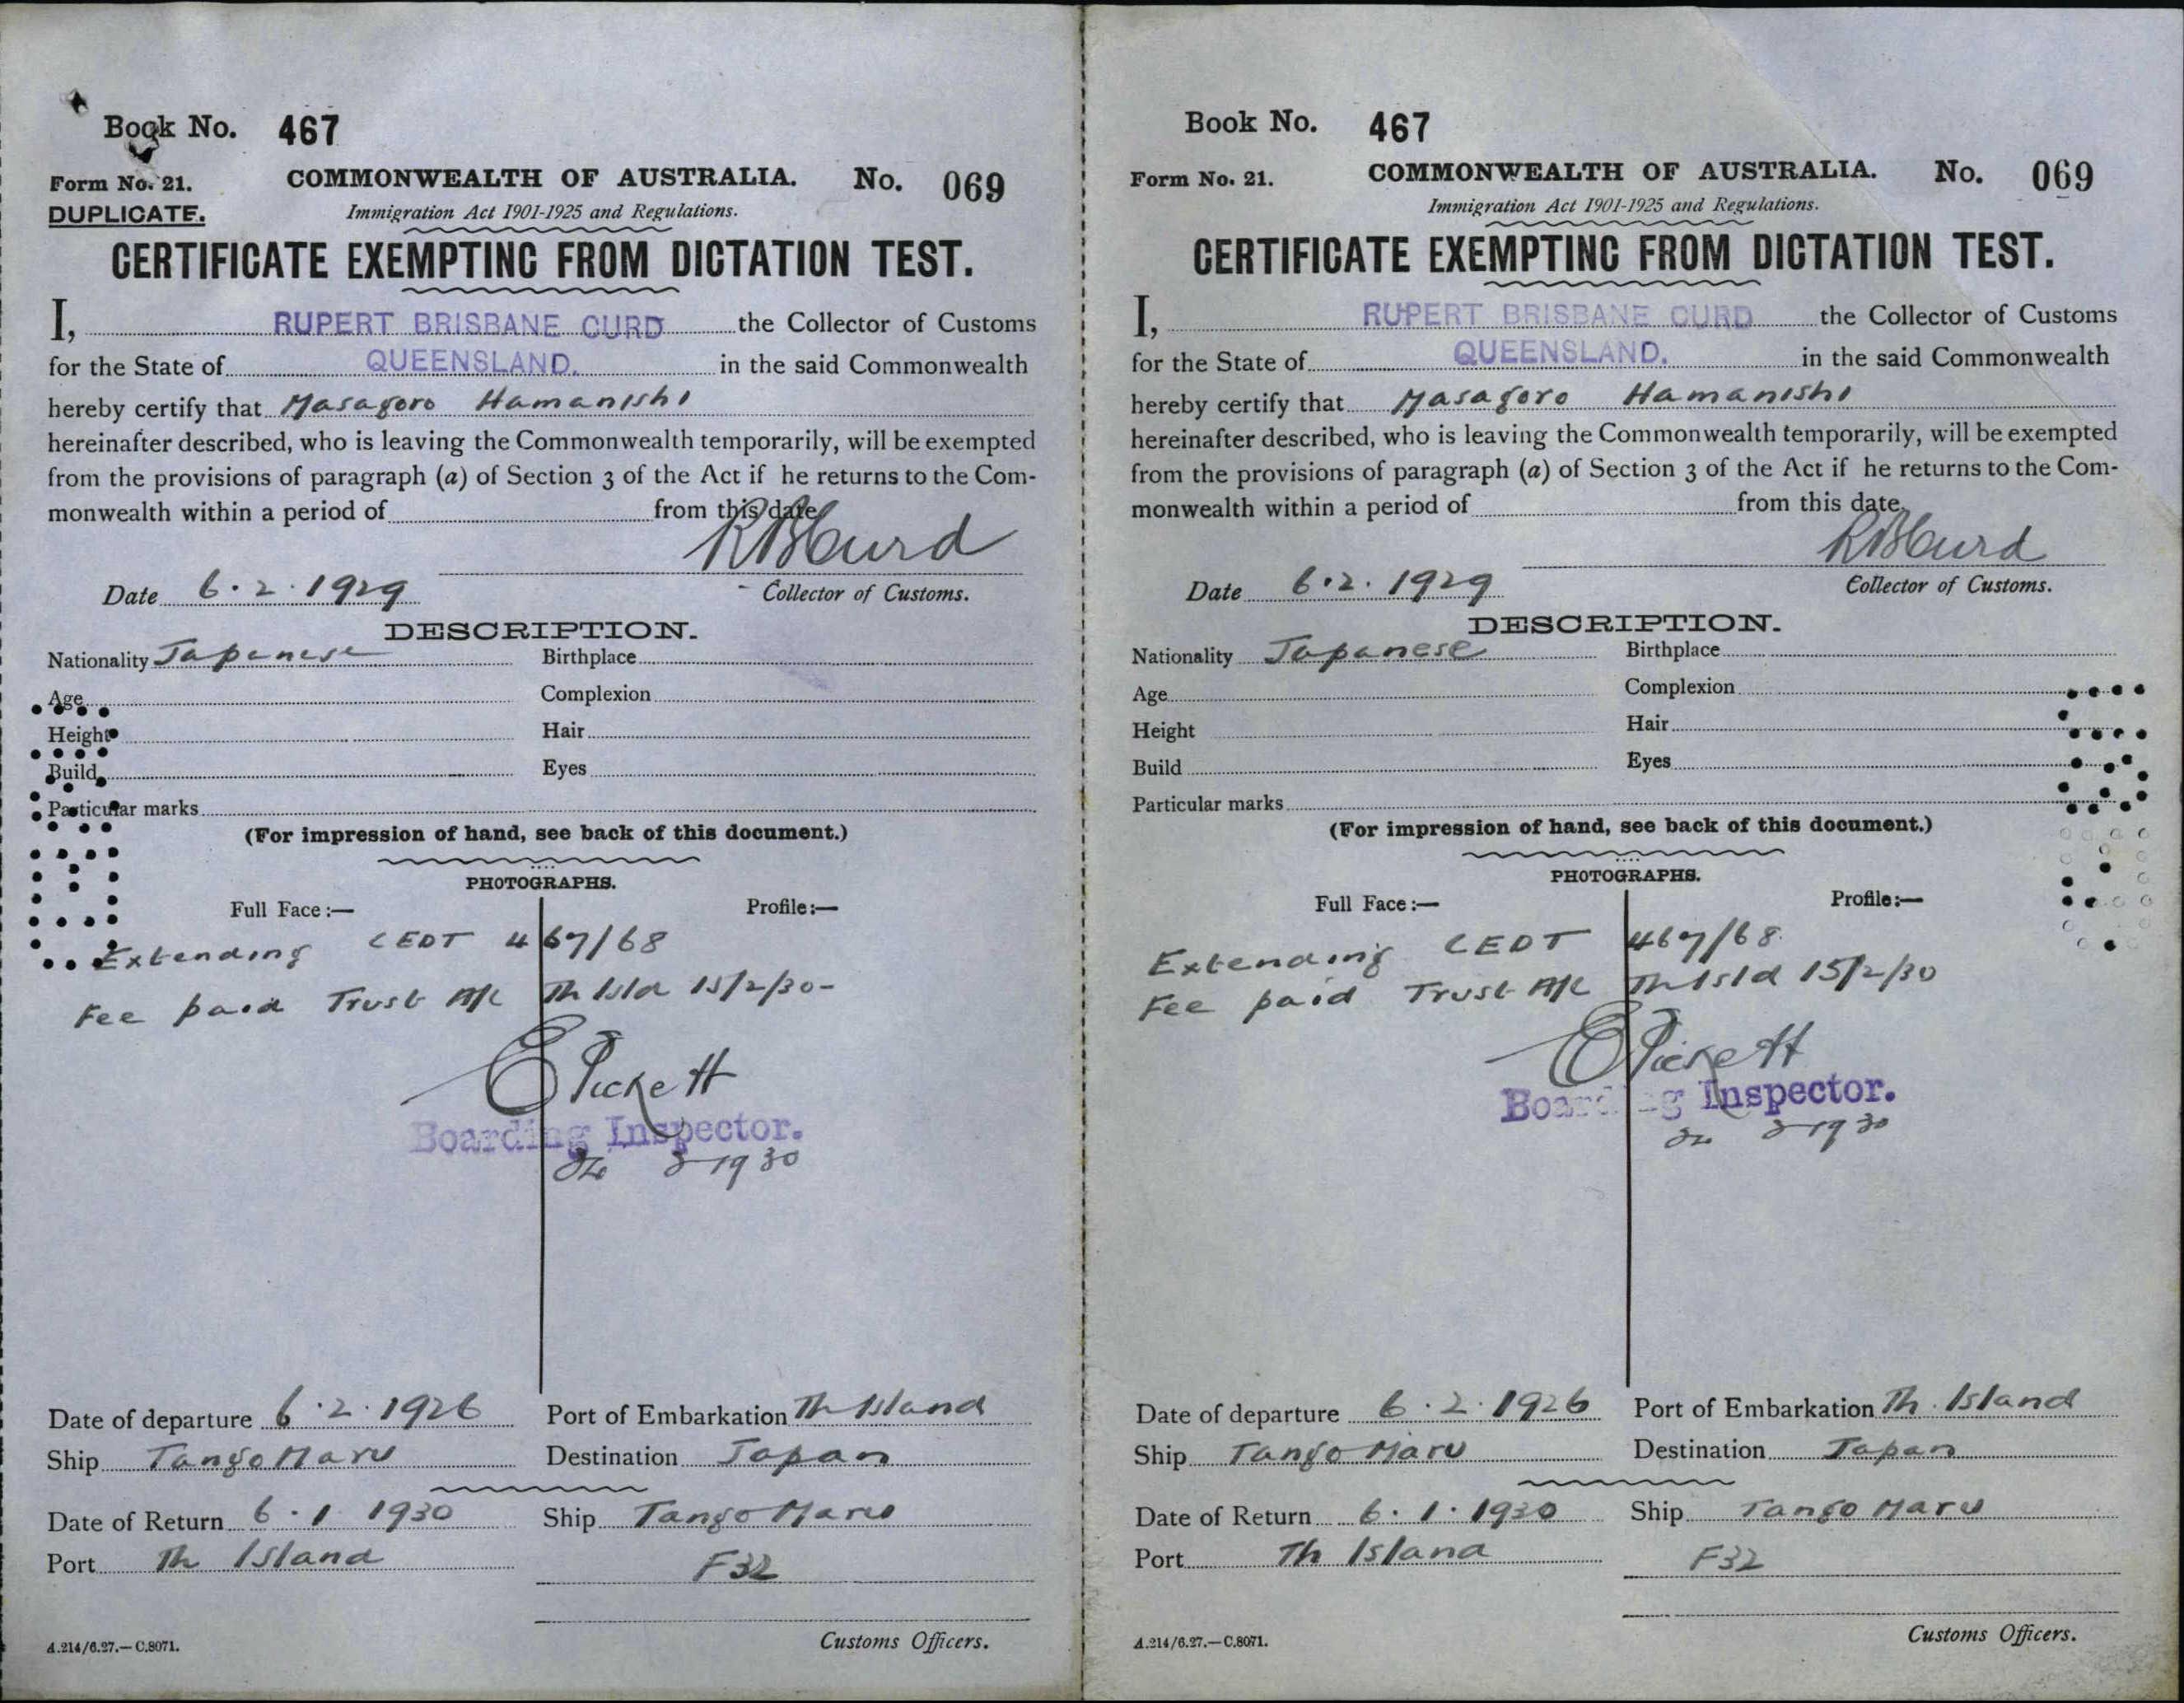 Book No. 467
Form No. 21.
DUPLICATE.
COMMONWEALTH OF AUSTRALIA. No. 069
Immigration Act 1901-1925 and Regulations.
CERTIFICATE EXEMPTING FROM DICTATION TEST.
I, RUPERT BRISBANE CURD the Collector of Customs
for the State of QUEENSLAND. in the said Commonwealth
hereby certify that Masagoro Hamanishi
hereinafter described, who is leaving the Commonwealth temporarily, will be exempted
from the provisions of paragraph (a) of Section 3 of the Act if he returns to the Com-
monwealth within a period of from this date
R B Curd
Date 6.2.1929 Collector of Customs.
DESCRIPTION.
Nationality Japanese Birthplace
Age Complexion
Height Hair
Build Eyes
Particular marks
(For impression of hand, see back of this document.)
PHOTOGRAPHS.
Full Face:— Profile:—
Extending CEDT 467/68
Fee paid Trust A/c Th Isld 15/2/30-
E Pickett
Boarding Inspector.
1930
Date of departure 6.2.1926 Port of Embarkation Th Island
Ship Tango Maru Destination Japan
Date of Return 6.1 1930 Ship Tango Maru
Port Th Island F32
A.214/6.27.—C.8071. Customs Officers.
Book No. 467
Form No. 21.
COMMONWEALTH OF AUSTRALIA. No. 069
Immigration Act 1901-1925 and Regulations.
CERTIFICATE EXEMPTING FROM DICTATION TEST.
I, RUPERT BRISBANE CURD the Collector of Customs
for the State of QUEENSLAND. in the said Commonwealth
hereby certify that Masagoro Hamanishi
hereinafter described, who is leaving the Commonwealth temporarily, will be exempted
from the provisions of paragraph (a) of Section 3 of the Act if he returns to the Com-
monwealth within a period of from this date.
R B Curd
Date 6.2.1929 Collector of Customs.
DESCRIPTION.
Nationality Japanese Birthplace
Age Complexion
Height Hair
Build Eyes
Particular marks
(For impression of hand, see back of this document.)
PHOTOGRAPHS.
Full Face:— Profile:—
Extending CEDT 467/68
Fee paid Trust A/c Th Isld 15/2/30
E Pickett
Boarding Inspector.
1930
Date of departure 6.2.1926 Port of Embarkation Th. Island
Ship Tango Maru Destination Japan
Date of Return 6.1.1930 Ship Tango Maru
Port Th Island F32
A.214/6.27.—C.8071. Customs Officers.